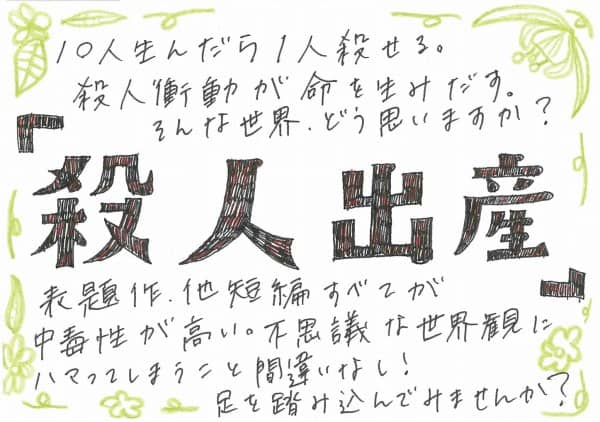 10人生んだら1人殺せる。
殺人衝動が命を生みだす。
そんな世界、どう思いますか?
『殺人出産』
表題作、他短編すべてが
中毒性が高い。不思議な世界観に
ハマってしまうこと間違いなし!
足を踏み込んでみませんか?